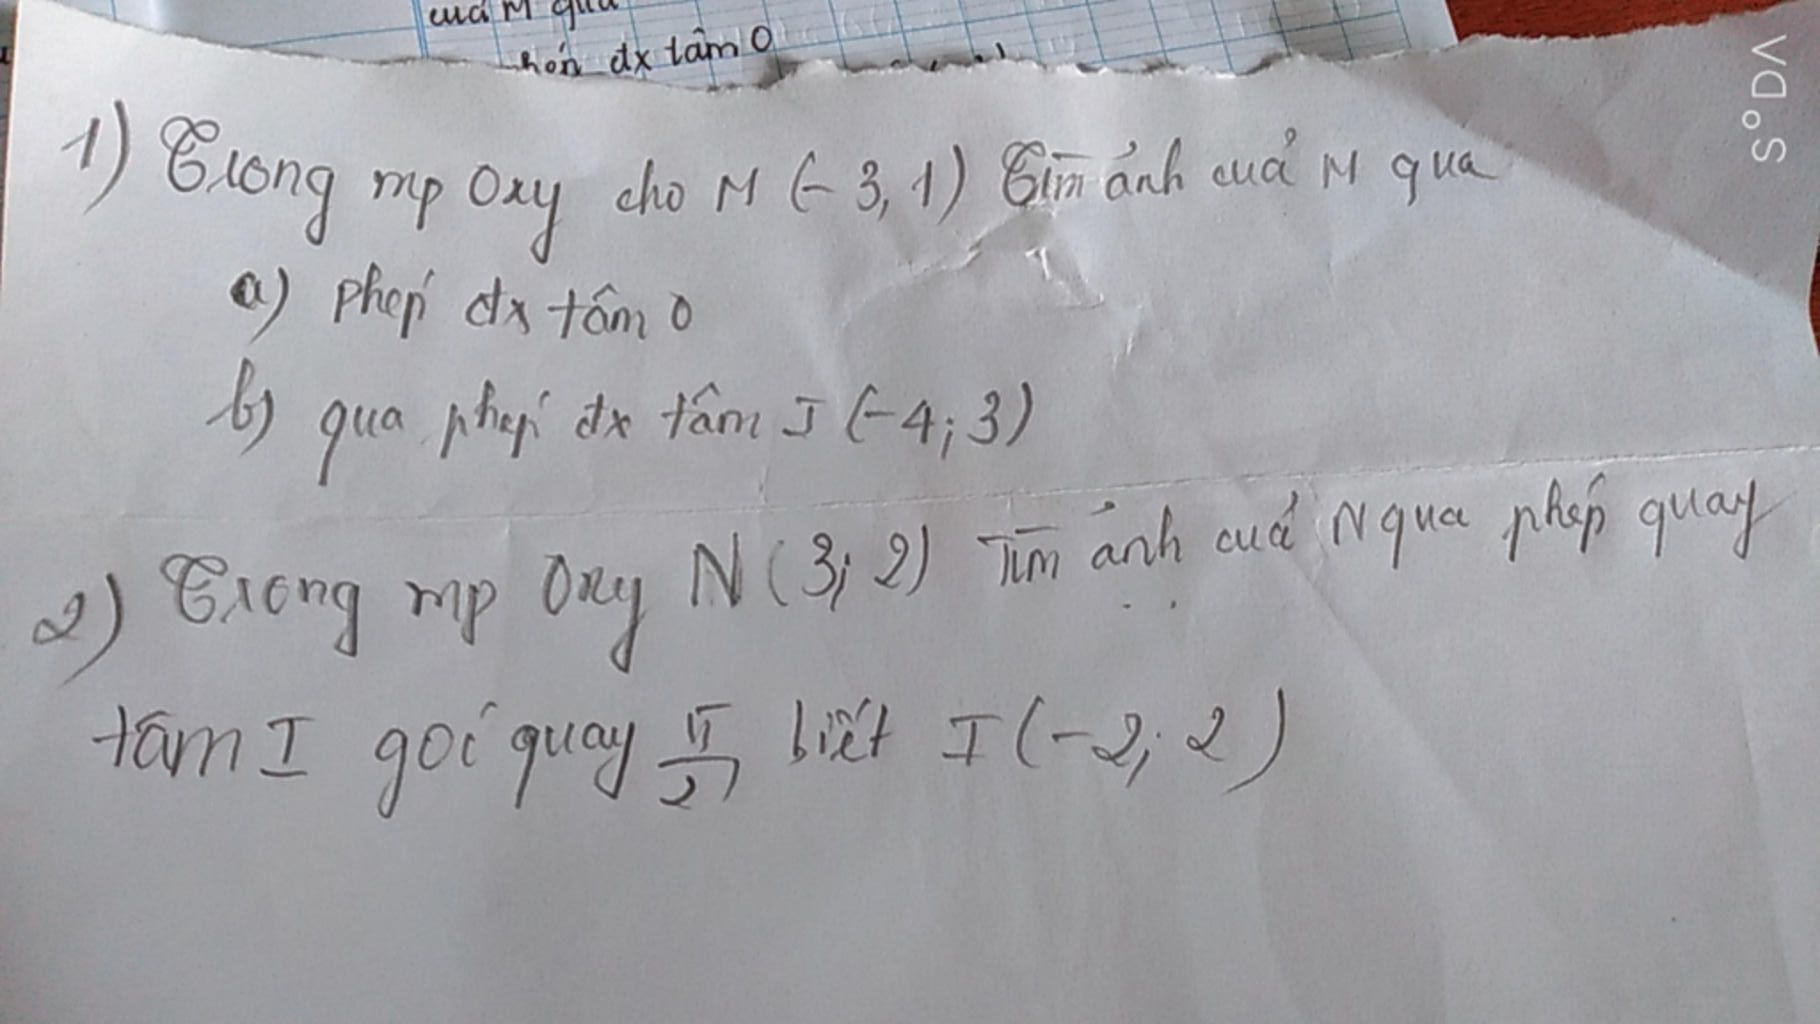 cuả M qua
dx tâm O
1) Trong mp Oxy cho M (-3, 1) Tìm ảnh cuả M qua
a) phép đx tâm O
b) qua phép đx tâm I (-4; 3)
2) Trong mp Oxy N (3; 2) Tìm ảnh cuả N qua phép quay
tâm I goí quay π/2 biết I (-2; 2)